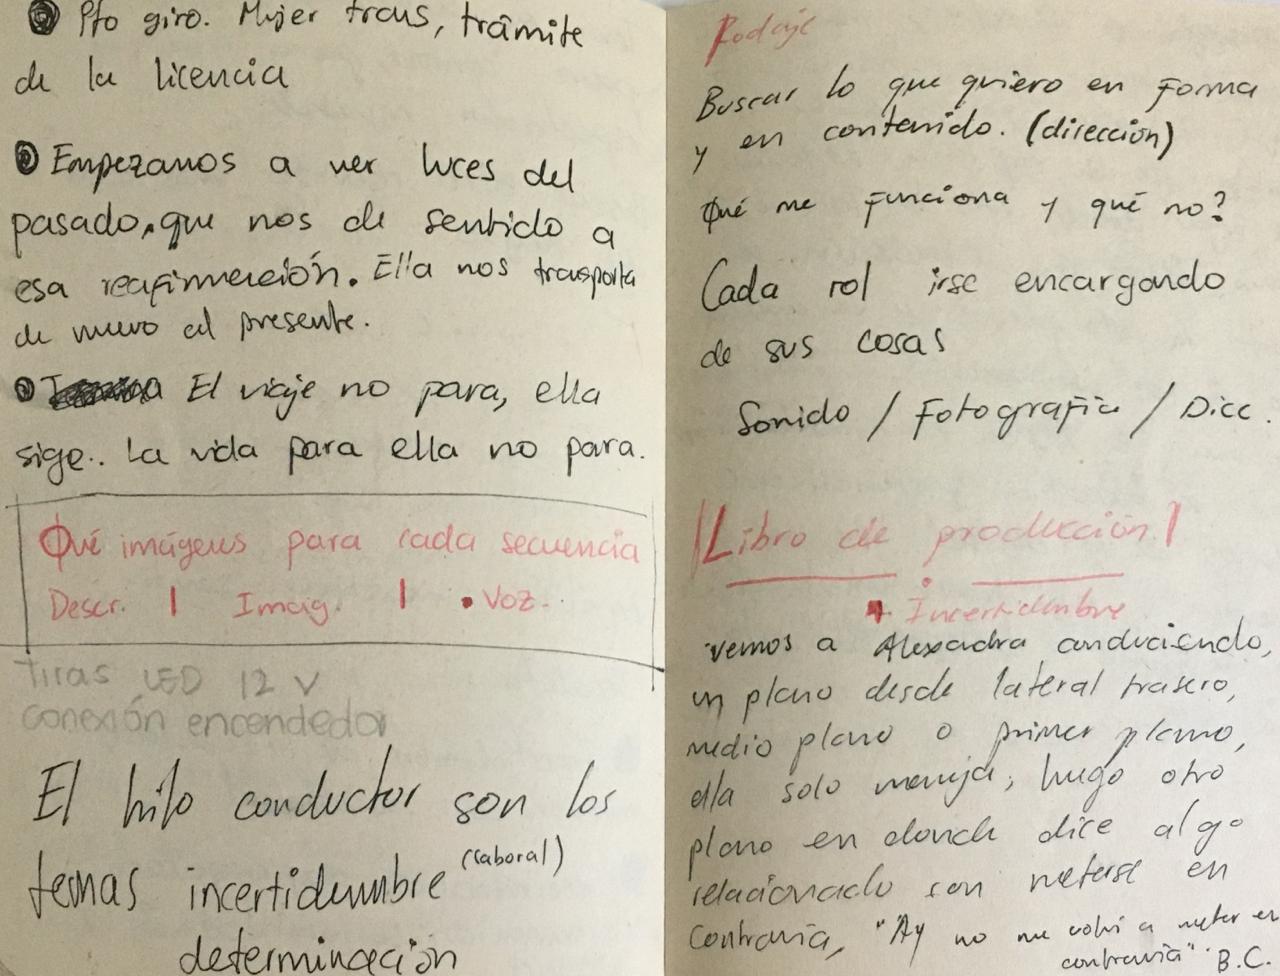 Pto giro. Mujer trans, trámite
de la licencia
Empezamos a ver luces del
pasado, que nos de sentido a
esa reafirmación. Ella nos transporta
de nuevo al presente.
El viaje no para, ella
sige.. La vida para ella no para.
Qué imágenes para cada secuencia
Descr. | Imag. | • Voz.
Tiras LED 12 V
conexión encendedor
El hilo conductor son los
temas incertidumbre (laboral)
determinación
Rodaje
Buscar lo que quiero en forma
y en contenido. (dirección)
Qué me funciona y qué no?
Cada rol irse encargando
de sus cosas
Sonido / Fotografía / Dicc.
|Libro de producción|
• Incertidumbre
vemos a Alexandra conduciendo,
un plano desde lateral trasero,
medio plano o primer plano,
ella solo maneja, luego otro
plano en donde dice algo
relacionado con meterse en
contravía, "Ay no me volví a meter en
contravía" B.C.